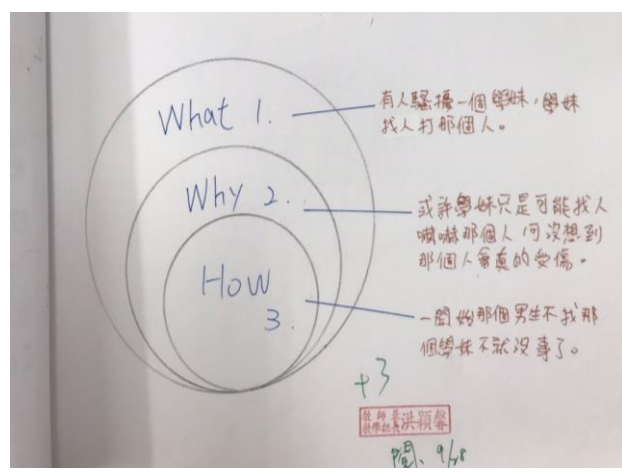 What 1.
有人騷擾一個學妹,學妹
找人打那個人。
Why 2.
或許學妹只是可能找人
嚇嚇那個人,可沒想到
那個人會真的受傷。
How
3.
一開始那個男生不找那
個學妹不就沒事了。
+3
洪穎馨
閱、9/28